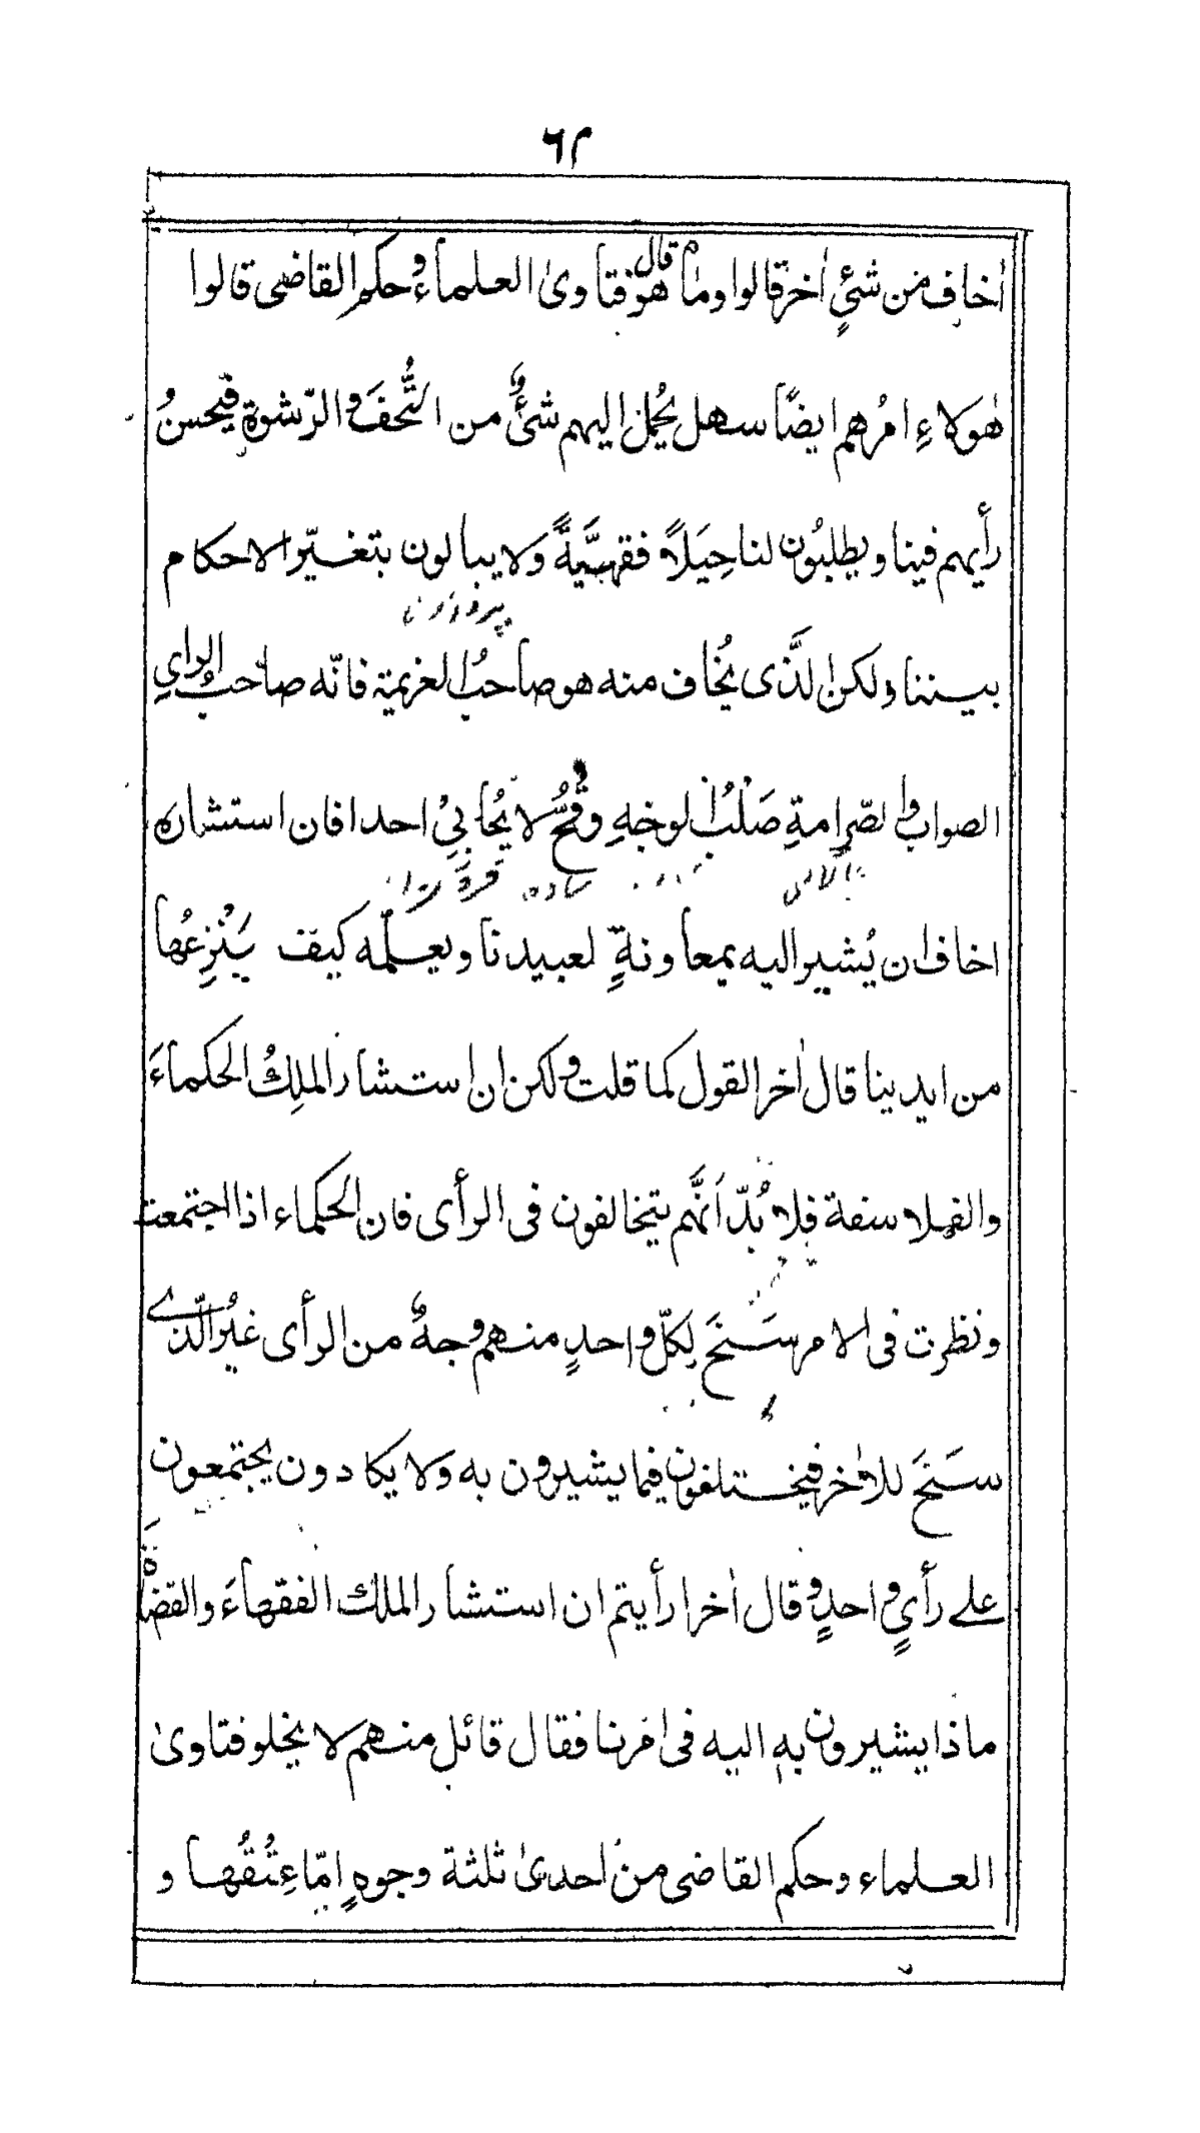 ٦٢
اٰخاف من شئٍ اٰخر قالوا وما هو قال فتاوىٰ العلماء وحكم القاضى قالوا
هٰؤلاءِ امرُهم ايضًا سهل يُحمل اليهم شئٌ من التُّحفَ والرّشوةِ فيحسنُ
رأيهم فينا ويطلبُون لنا حِيَلاً فقهيَّةً ولا يبالون بتغيّر الاحكام
بيننا ولكن الَّذى يُخاف منه هو صاحبُ العزيمة فانّه صاحب الراي
الصواب والصّرامةِ صَلْبُ الوجْهِ وقحٌ لا يُحابِىْ احدا فان استشاره
اخاف ان يُشير اليه بمعاونةٍ لعبيدنا ويعلّمه كيف يَنْزِعُها
من ايدينا قال اٰخر القول كما قلت ولكن ان استشار الملِكُ الحكماءَ
والفلاسفة فلا بُدّ اَنَّهم يتخالفون فى الرأى فان الحكماء اذا اجتمعت
ونظرت فى الامر سَنَحَ لِكلّ واحدٍ منهم وجهٌ من الرأى غيرُ الّذے
سَنَحَ للاٰخر فيختلفون فيما يشيرون به ولا يكادون يجتمعون
علے رأىٍ واحدٍ وقال اٰخر ارأيتم ان استشار الملك الفقهاءَ والقضاةَ
ماذا يشيرون به اليه فى امْرنا فقال قائل منهم لا يخلو فتاوىٰ
العلماء وحكم القاضى من احدىٰ ثلثة وجوهٍ اِمّا عِتْقُها و